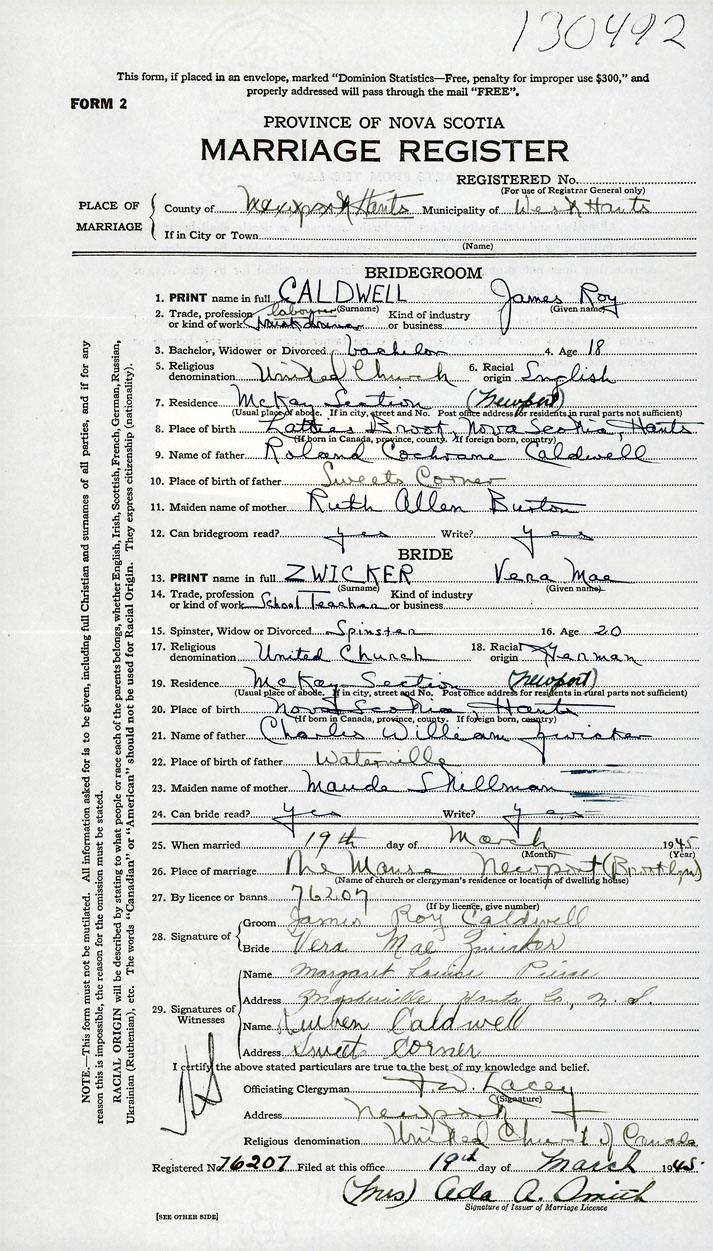 130492
This form, if placed in an envelope, marked "Dominion Statistics—Free, penalty for improper use $300," and
properly addressed will pass through the mail "FREE".
FORM 2
PROVINCE OF NOVA SCOTIA
MARRIAGE REGISTER
REGISTERED No.
(For use of Registrar General only)
PLACE OF MARRIAGE
County of Newport Hants Municipality of West Hants
If in City or Town
(Name)
BRIDEGROOM
1. PRINT name in full CALDWELL James Roy
(Surname) (Given name)
2. Trade, profession or kind of work labourer Kind of industry or business
3. Bachelor, Widower or Divorced bachelor 4. Age 18
5. Religious denomination United Church 6. Racial origin English
7. Residence McKay Section (Newport)
(Usual place of abode. If in city, street and No. Post office address for residents in rural parts not sufficient)
8. Place of birth Latties Brook, Nova Scotia, Hants
(If born in Canada, province, county. If foreign born, country)
9. Name of father Roland Cochrane Caldwell
10. Place of birth of father Sweets Corner
11. Maiden name of mother Ruth Allen Burton
12. Can bridegroom read? yes Write? yes
BRIDE
13. PRINT name in full ZWICKER Vera Mae
(Surname) (Given name)
14. Trade, profession or kind of work School Teacher Kind of industry or business
15. Spinster, Widow or Divorced Spinster 16. Age 20
17. Religious denomination United Church 18. Racial origin German
19. Residence McKay Section (Newport)
(Usual place of abode. If in city, street and No. Post office address for residents in rural parts not sufficient)
20. Place of birth Nova Scotia Hants
(If born in Canada, province, county. If foreign born, country)
21. Name of father Charles William Zwicker
22. Place of birth of father Waterville
23. Maiden name of mother Maude Skillman
24. Can bride read? yes Write? yes
25. When married 19th day of March 1945
(Month) (Year)
26. Place of marriage The Manse Newport (Brooklyn)
(Name of church or clergyman's residence or location of dwelling house)
27. By licence or banns 76207
(If by licence, give number)
28. Signature of
Groom James Roy Caldwell
Bride Vera Mae Zwicker
29. Signatures of Witnesses
Name Margaret Louise
Address Hants Co, N.S.
Name Reuben Caldwell
Address Sweet Corner
I certify the above stated particulars are true to the best of my knowledge and belief.
Officiating Clergyman Lacey
(Signature)
Address Newport
Religious denomination United Church of Canada
Registered No. 76207 Filed at this office 19th day of March 1945.
(Mrs) Ada A. Smith
Signature of Issuer of Marriage Licence
[SEE OTHER SIDE]
NOTE.—This form must not be mutilated. All information asked for is to be given, including full Christian and surnames of all parties, and if for any
reason this is impossible, the reason for the omission must be stated.
RACIAL ORIGIN will be described by stating to what people or race each of the parents belongs, whether English, Irish, Scottish, French, German, Russian,
Ukrainian (Ruthenian), etc. The words "Canadian" or "American" should not be used for Racial Origin. They express citizenship (nationality).